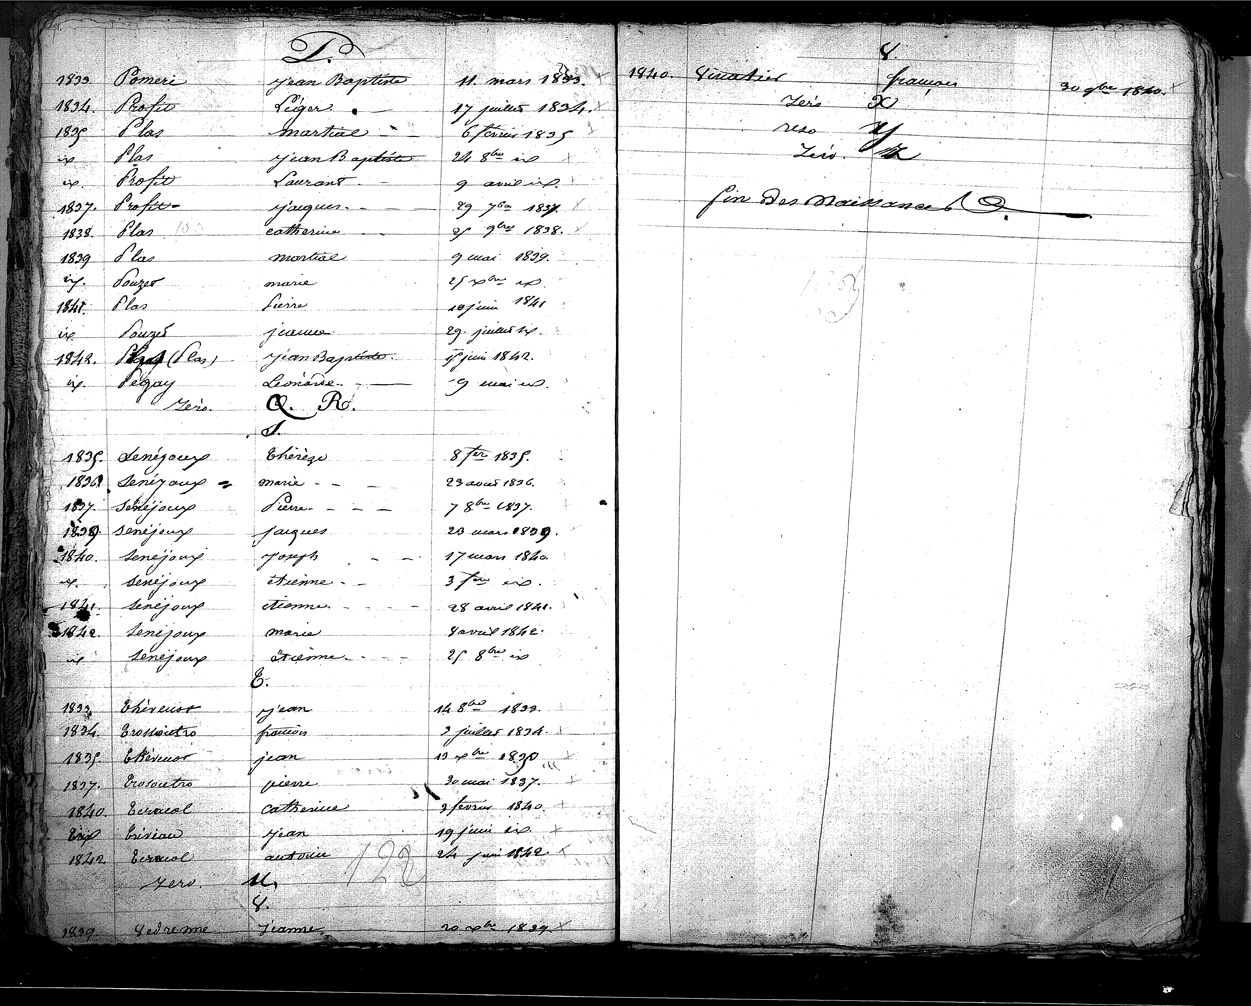 P.
1833 Pomeri jean Baptiste 11. mars 1833.
1834. Profit Léger. 17 juillet 1834.
1835 Plas martial 6 février 1835
ix Plas jean Baptiste 24 8bre ix
ix. Profit Laurant 9 avril ix.
1837. Profit jacques 29 7bre 1837.
1838. Plas catherine 25 9bre 1838.
1839 Plas martial 9 mai 1839.
ix. Pouzet marie 25 xbre ix.
1841. Plas Pierre 10 juin 1841
ix Pouzet jeanne 29. juillet ix.
1842. (Plas) jean Baptiste juin 1842.
ix. Pégay Léonarde 9 mai ix.
zéro. Q. R.
S.
1835. Senéjoux thérèze 8 fer 1835.
1836. Senéjoux marie 23 aout 1836.
1837. Senéjoux Pierre 7 8bre 1837.
1839. Senéjoux jacques 20 mars 1839.
1840. Senéjoux Joseph 17 mars 1840
ix. Senéjoux étienne 3 ix.
1841. Senéjoux étienne 28 avril 1841.
1842. Senéjoux marie 8 avril 1842.
ix Senéjoux étienne 25 8bre ix
T.
1833 thévenot jean 14 8bre 1833
1834. trossoutro françois 2 juillet 1834.
1835. thévenot jean 13 xbre 1835
1837. trossoutro pierre 30 mai 1837.
1840. terracol catherine 3 février 1840.
ix jean 19 juin ix
1842 terracol antoine 24 juin 1842
zéro. U.
122
V.
1839. Vedrenne jeanne 20 xbre 1839.
V
1840. Vinatier françois 30 9bre 1840.
zéro X
zéro Y
zéro. Z
fin des Naissances